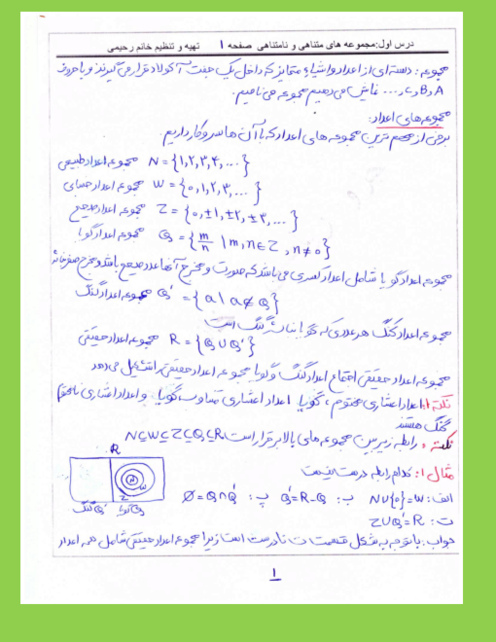 درس اول:مجموعه های متناهی و نامتناهی صفحه ۱ تهیه و تنظیم خانم رحیمی
مجموعه: دسته‌ای از اعداد و اشیاء متمایز که داخل یک جفت آکولاد قرار می‌گیرند و با حروف
A و B و C و ... نمایش می‌دهیم مجموعه می‌نامیم.
مجموعه‌های اعداد:
برخی از مهم ترین مجموعه های اعداد که با آن ها سروکار داریم.
N = {۱,۲,۳,۴,...} مجموعه اعداد طبیعی
W = {۰,۱,۲,۳,...} مجموعه اعداد حسابی
Z = {۰,±۱,±۲,±۳,...} مجموعه اعداد صحیح
Q = {m/n | m,n∈Z , n≠۰} مجموعه اعداد گویا
مجموعه اعداد گویا شامل اعداد کسری می باشد که صورت و مخرج آنها عدد صحیح باشد و مخرج صفر نباشد
Q' = {a | a∉Q} مجموعه اعداد گنگ
مجموعه اعداد گنگ هر عددی که گویا نباشد گنگ است
R = {Q∪Q'} مجموعه اعداد حقیقی
مجموعه اعداد حقیقی اجتماع اعداد گنگ و گویا مجموعه اعداد حقیقی را تشکیل می دهد
نکته ۱: اعداد اعشاری مختوم، گویا اعداد اعشاری متناوب، گویا و اعداد اعشاری نامختوم
گنگ هستند
نکته: رابطه زیر بین مجموعه های بالا برقرار است N⊆W⊆Z⊆Q⊆R
مثال ۱: کدام رابطه درست نیست
الف: N∪{۰}=W ب: Q'=R-Q پ: Ø=Q∩Q'
ت: Z∪Q'=R
R
N
W
Z
Q گویا
Q' گنگ
جواب: با توجه به شکل قسمت ت نادرست است زیرا مجموعه اعداد حقیقی شامل همه اعداد
۱